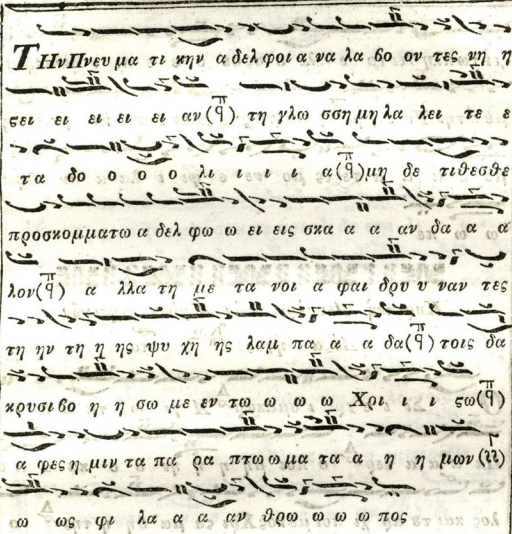 ΤΗν Πνευ μα τι κην α δελ φοι α να λα βο ον τες νη η
ςει ει ει ει ει αν (π̅ q) τη γλω σση μη λα λει τε ε
τα δο ο ο ο λι ι ι ι α (π̅ q) μη δε τιθεσθε
προσκομματω α δελ φω ω ει εις σκα α α αν δα α α
λον (π̅ q) α λλα τη με τα νοι α φαι δρυ υ ναν τες
τη ην τη η ης ψυ χη ης λαμ πα α α δα (π̅ q) τοις δα
κρυσι βο η η σω με εν τω ω ω ω Χρι ι ι ςω (π̅ q)
α φες η μιν τα πα ρα πτω ω μα τα α η η μων
ω ως φι λα α α αν θρω ω ω ω πος